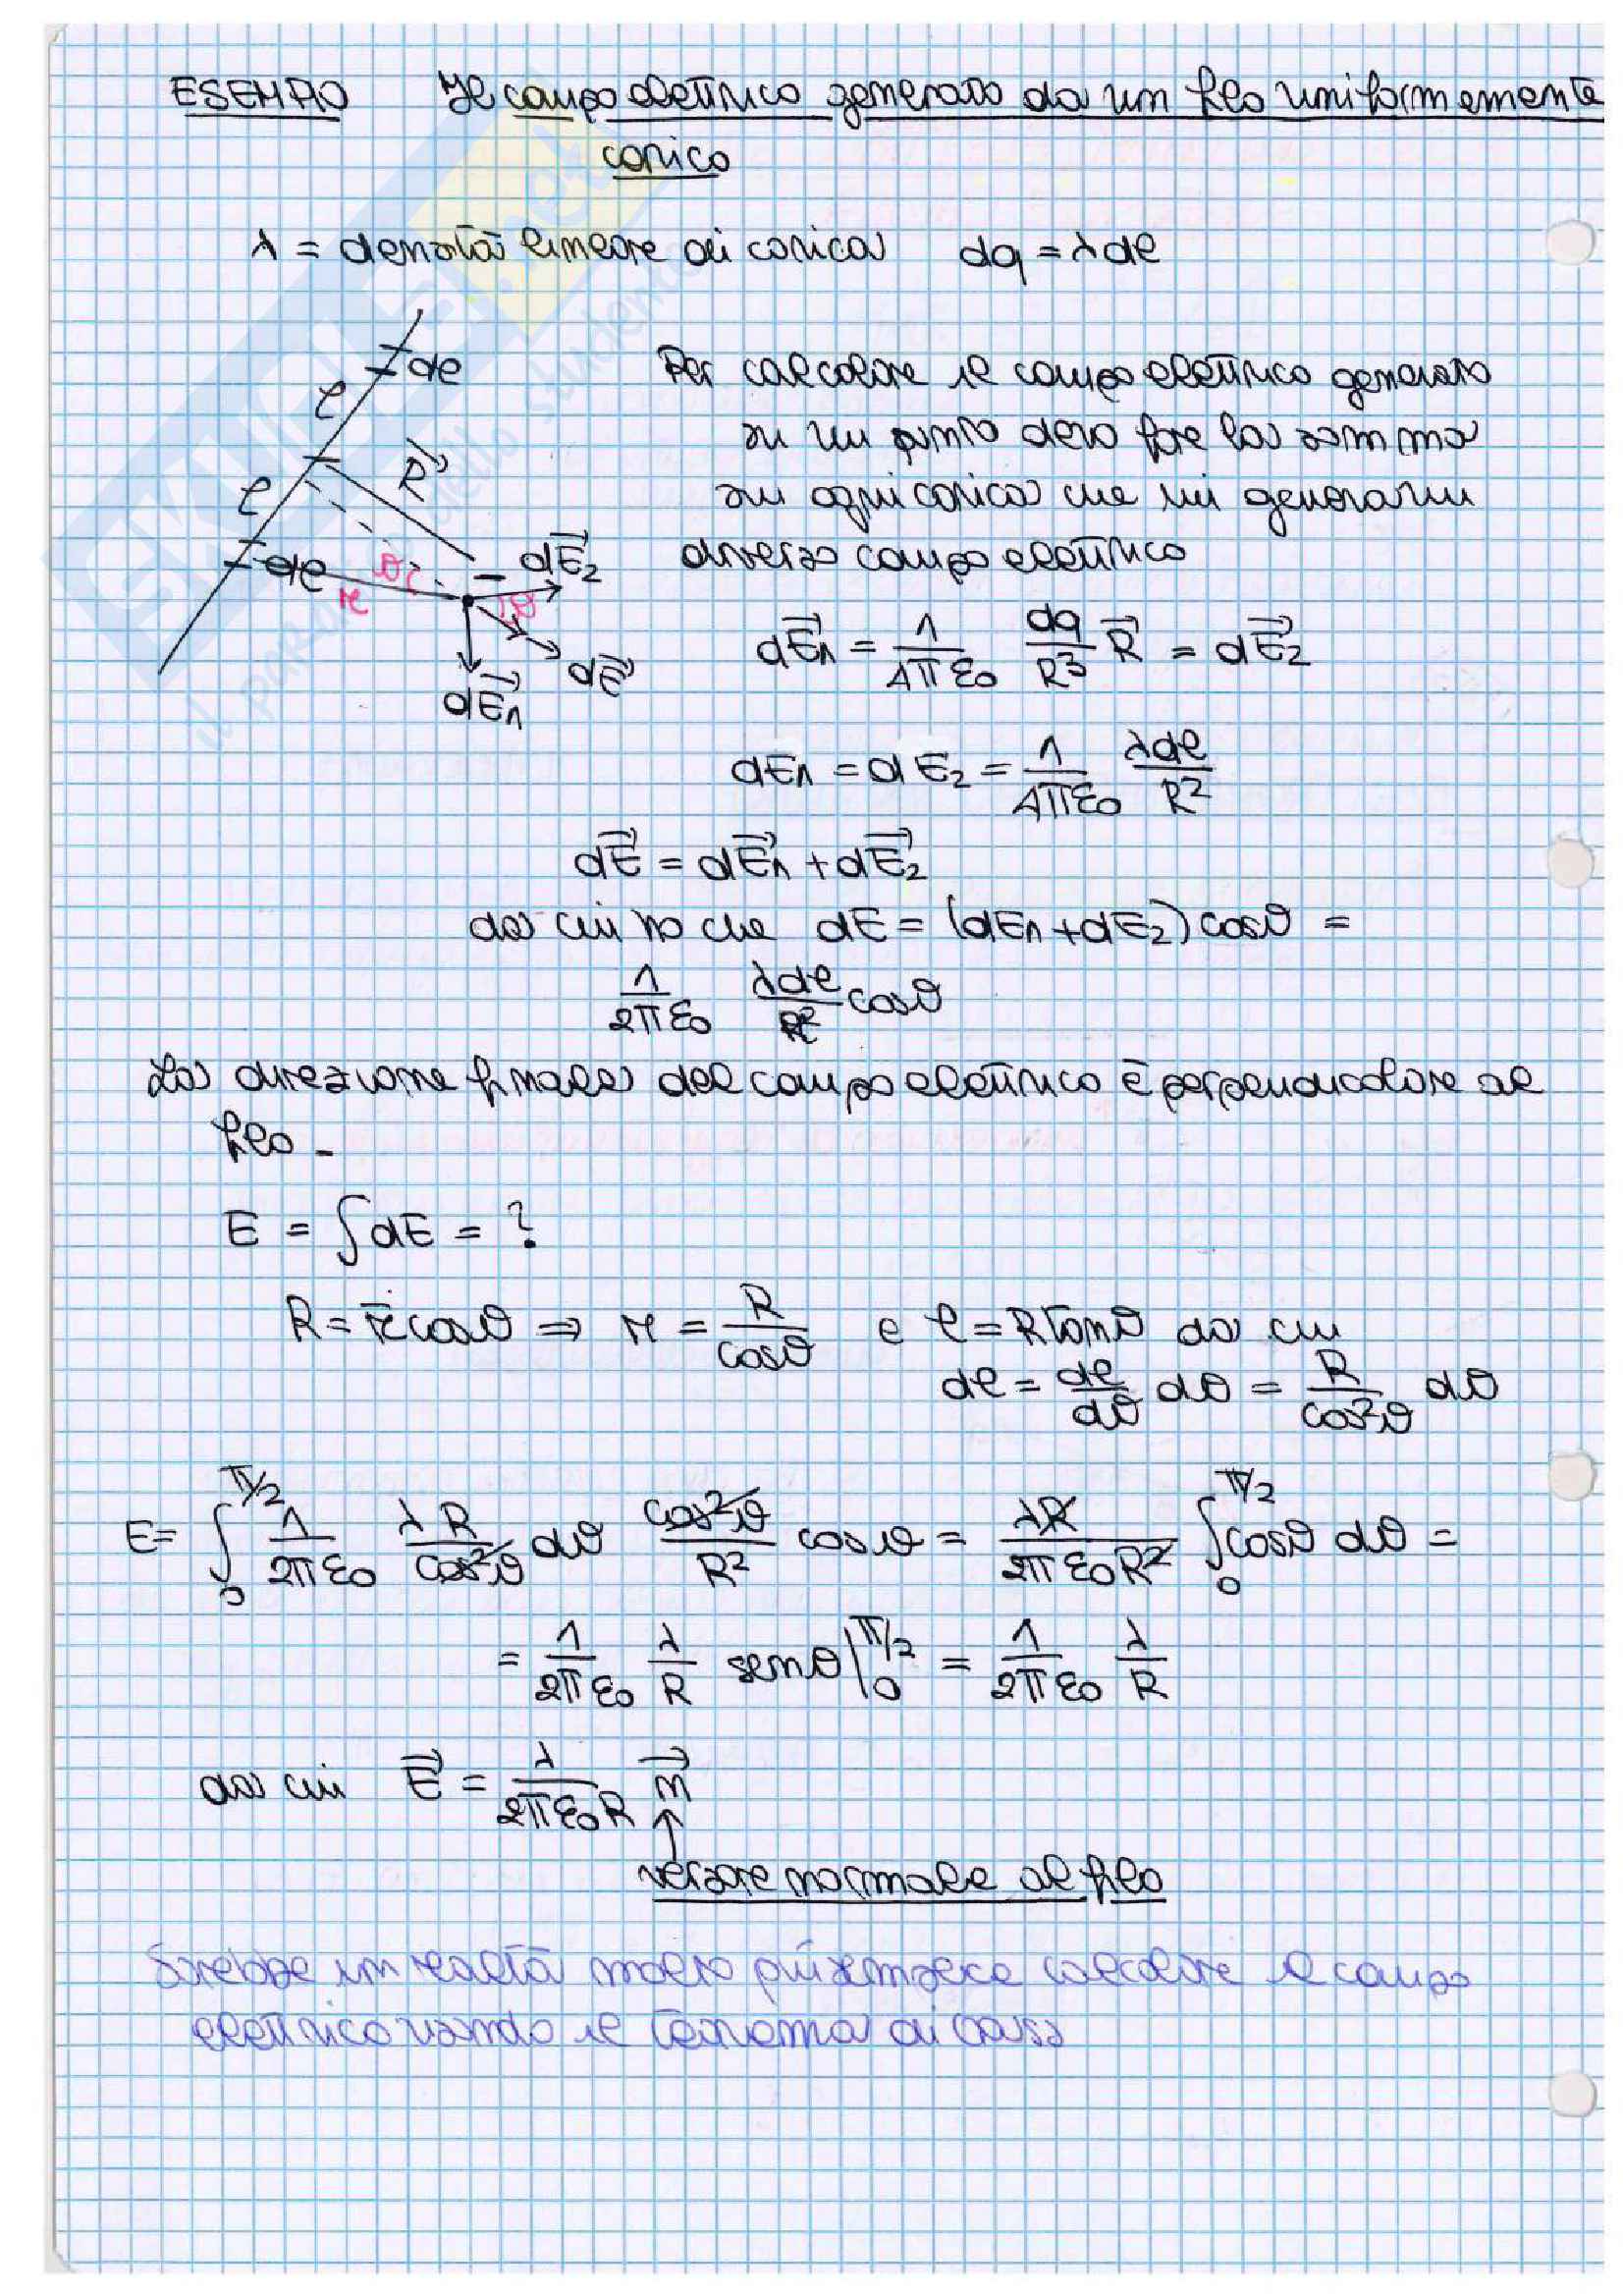 ESEMPIO Il campo elettrico generato da un filo uniformemente
carico
λ = densità lineare di carica dq = λdl
dl
l
l
dl
R⃗
θ
r
dE⃗₂
θ
dE⃗
dE⃗₁
Per calcolare il campo elettrico generato
in un punto devo fare la somma
su ogni carica che mi genera un
diverso campo elettrico
dE⃗₁ = 1/4πε₀ dq/R³ R⃗ = dE⃗₂
dE₁ = dE₂ = 1/4πε₀ λdl/R²
dE⃗ = dE⃗₁ + dE⃗₂
da cui ho che dE = (dE₁ + dE₂) cosθ =
1/2πε₀ λdl/r² cosθ
La direzione finale del campo elettrico è perpendicolare al
filo -
E = ∫dE = ?
R = r cosθ ⇒ r = R/cosθ e l = R tanθ da cui
dl = dl/dθ dθ = R/cos²θ dθ
E = ∫₀^π/2 1/2πε₀ λR/cos²θ dθ cos²θ/R² cosθ = λR/2πε₀R² ∫₀^π/2 cosθ dθ =
= 1/2πε₀ λ/R senθ|₀^π/2 = 1/2πε₀ λ/R
da cui E⃗ = λ/2πε₀R n⃗
↑
versore normale al filo
Sarebbe in realtà molto più semplice calcolare il campo
elettrico usando il teorema di Gauss
SKUOLA.net
il paradiso dello studente